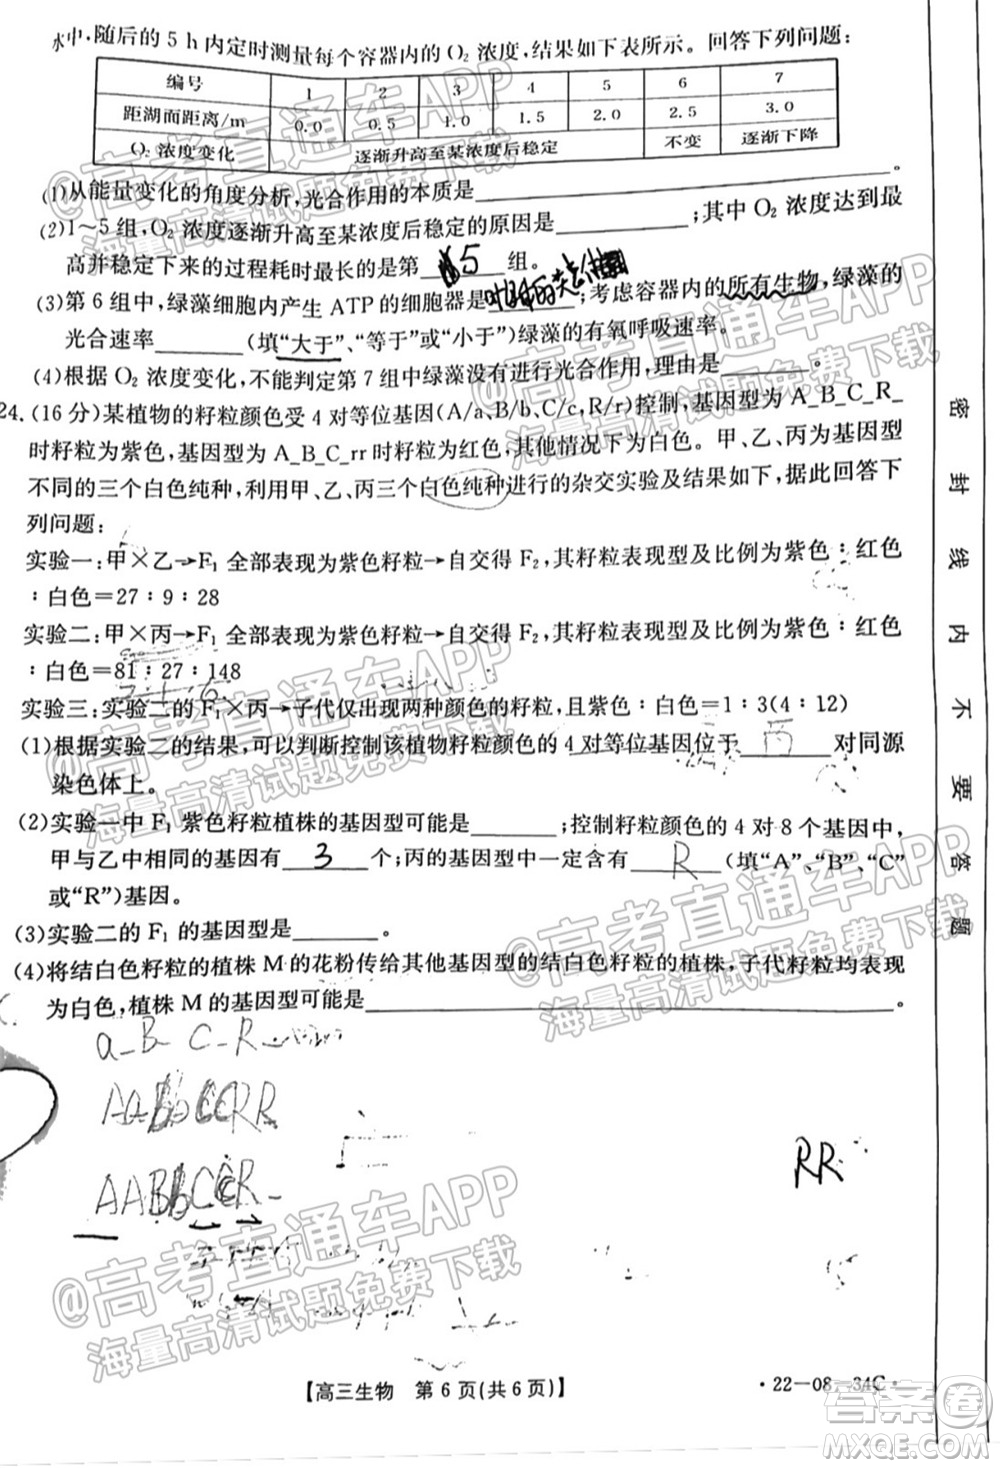 水中,随后的5 h内定时测量每个容器内的O₂浓度,结果如下表所示。回答下列问题:
编号 1 2 3 4 5 6 7
距湖面距离/m 0.0 0.5 1.0 1.5 2.0 2.5 3.0
O₂浓度变化 逐渐升高至某浓度后稳定 不变 逐渐下降
(1)从能量变化的角度分析,光合作用的本质是________。
(2)1~5组,O₂浓度逐渐升高至某浓度后稳定的原因是________;其中O₂浓度达到最
高并稳定下来的过程耗时最长的是第 5 组。
(3)第6组中,绿藻细胞内产生ATP的细胞器是________;考虑容器内的所有生物,绿藻的
光合速率________(填“大于”、“等于”或“小于”)绿藻的有氧呼吸速率。
(4)根据O₂浓度变化,不能判定第7组中绿藻没有进行光合作用,理由是________。
24.(16分)某植物的籽粒颜色受4对等位基因(A/a、B/b、C/c、R/r)控制,基因型为A_B_C_R_
时籽粒为紫色,基因型为A_B_C_rr时籽粒为红色,其他情况下为白色。甲、乙、丙为基因型
不同的三个白色纯种,利用甲、乙、丙三个白色纯种进行的杂交实验及结果如下,据此回答下
列问题:
实验一:甲×乙→F₁全部表现为紫色籽粒→自交得F₂,其籽粒表现型及比例为紫色:红色
:白色=27:9:28
实验二:甲×丙→F₁全部表现为紫色籽粒→自交得F₂,其籽粒表现型及比例为紫色:红色
:白色=81:27:148
实验三:实验二的F₁×丙→子代仅出现两种颜色的籽粒,且紫色:白色=1:3(4:12)
(1)根据实验二的结果,可以判断控制该植物籽粒颜色的4对等位基因位于________对同源
染色体上。
(2)实验一中F₁紫色籽粒植株的基因型可能是________;控制籽粒颜色的4对8个基因中,
甲与乙中相同的基因有 3 个;丙的基因中一定含有 R (填“A”、“B”、“C”
或“R”)基因。
(3)实验二的F₁的基因型是________。
(4)将结白色籽粒的植株M的花粉传给其他基因型的结白色籽粒的植株,子代籽粒均表现
为白色,植株M的基因型可能是________。
a_B_C_R_
RR
【高三生物 第6页(共6页)】
·22—08—34C·
密封线内不要答题
@高考直通车APP
海量高清试题免费下载
@高考直通车APP
海量高清试题免费下载
@高考直通车APP
海量高清试题免费下载
@高考直通车APP
海量高清试题免费下载
@高考直通车APP
海量高清试题免费下载
答案圈
MXQE.COM